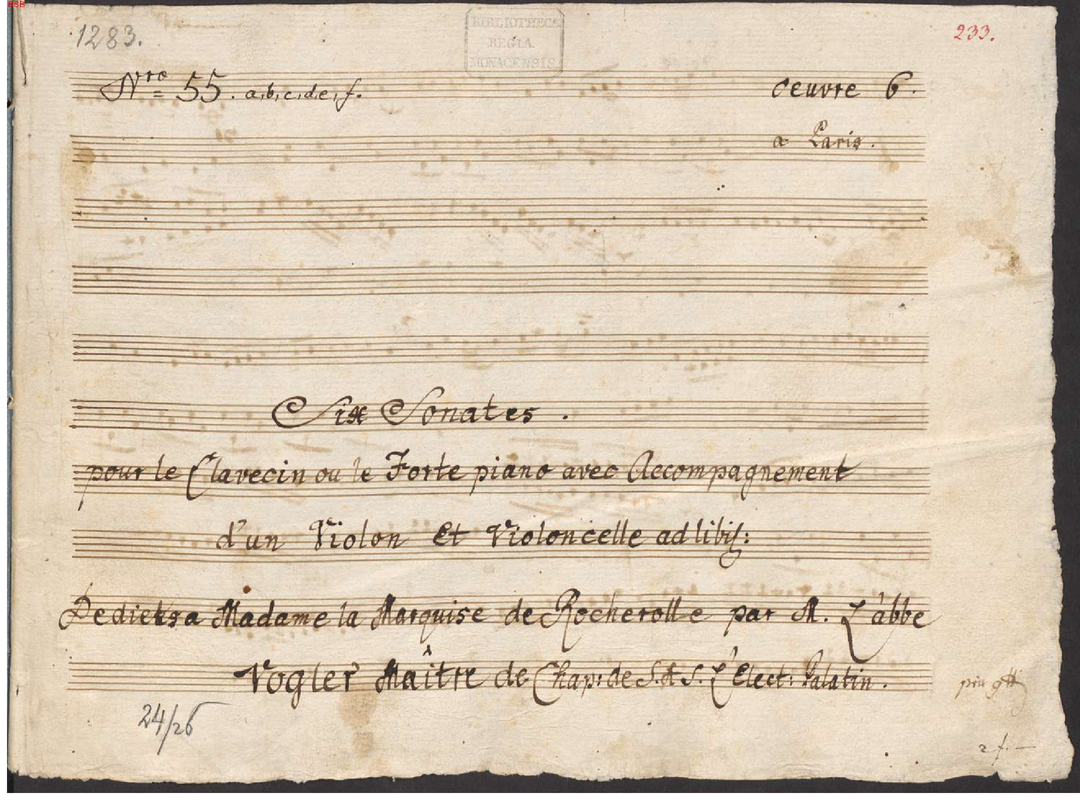 1283.
BIBLIOTHECA
REGIA
MONACENSIS.
233.
Nro 55. a,b,c,d,e,f.
oeuvre 6.
a Paris.
Six Sonates.
pour le Clavecin ou le Forte piano avec Accompagnement
d'un Violon Et Violoncelle ad libit:
Dediees a Madame la Marquise de Rocherolle par M. L'abbe
Vogler Maître de Chap: de S. A. S. L'Elect: Palatin.
24/26
2 f.